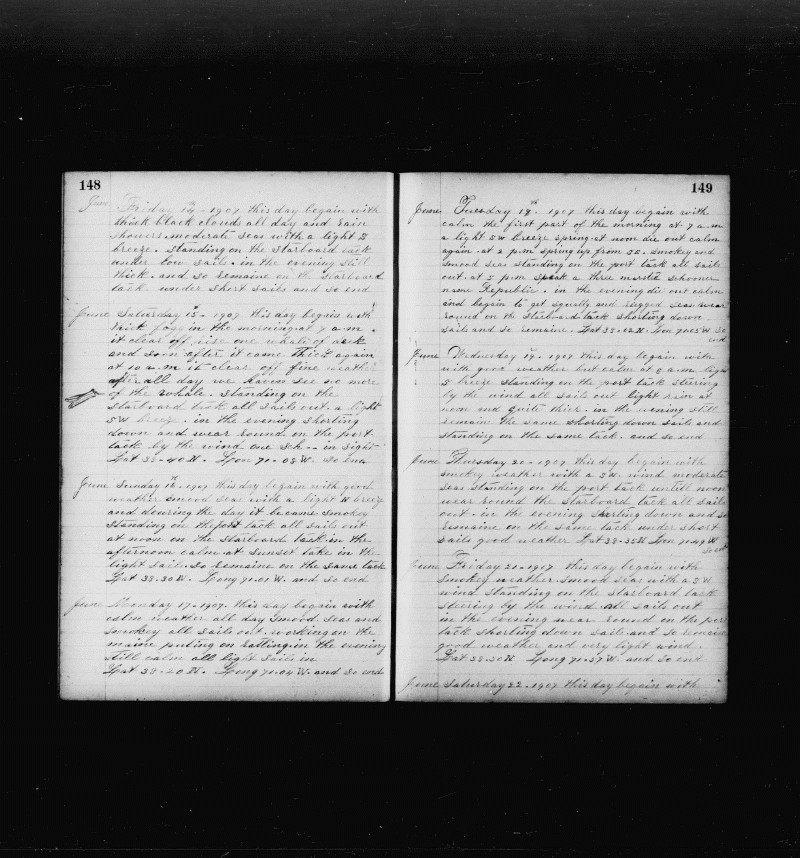 148
June Friday 14th - 1907 this day begain with
thick black clouds all day and rain
showers. moderate seas with a light S
breeze. Standing on the starboard tack
under low sails. in the evening still
thick. and so remaine on the starboard
tack under short sails and so end
June Saturday 15 - 1907 this day begain with
thick fogg in the morning at 7 a-m.
it clear off rise one whale of deck
and soon after it come thick again
at 10 a.m it clear off fine weather
after all day we haven see no more
of the whale. Standing on the
starboard tack all sails out. a light
SW breeze. in the evening shorting
down and wear round on the port
tack by the wind one Sch-- in sight
Lat 38-40N. Lon 71-08W. So end
June Sunday 16th - 1907 this day begain with good
weather smood seas with a light N breeze
and deuring the day it became smokey
standing on the port tack all sails out
at noon on the starboard tack in the
afternoon calm at sunset take in the
light sail. So remaine on the same tack
Lat 38-30N. Long 71-01W. and so end
June Monday 17-1907. this day begain with
calm weather all day smood seas and
smokey all sails out. working on the
maine puting on ratling. in the evening
still calm all light sails in
Lat 38-20N. Long 71-04W. and so end
149
June Tuesday 18th - 1907 this day begain with
calm the first part of the morning at 7 a.m
a light SW breeze spring. at noon die out calm
again. at 2 p.m spring up from SE. smokey and
smood seas standing on the port tack all sails
out. at 5 p.m speak a three mastie schooner
name Republic. in the evening die out calm
and begain to get squelly and rugged seas. wear
round on the starboard tack shorting down
sails and so remaine. Lat 38-02N. Lon 71-05W So
end
June Wednesday 19th - 1907 this day began with
with good weather but calm at 8 a.m. light
S breeze standing on the port tack steering
by the wind all sails out light rain at
noon and quite thick. in the evening still
remaine the same shorting down sail and
standing on the same tack. and so end
June Thursday 20-1907 this day begain with
smokey weather with a SW. wind moderate
seas standing on the port tack untill noon
wear round the starboard tack all sails
out. in the evening shorting down and so
remaine on the same tack under short
sails good weather Lat 38-35N Lon 71-49W
So end
June Friday 21-1907 this day begain with
smokey weather. smood seas with a SW
wind standing on the starboard tack
steering by the wind all sails out
in the evening wear round on the port
tack shorting down sails and so remaine
good weather and very light wind.
Lat 38-30N Long 71-57W. and so end
June Saturday 22-1907 this day begain with